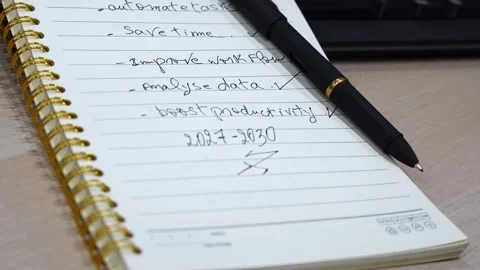 - automate task
- Save time.
- Improve work flow
- Analyse data.
- boost productivity
2027-2030